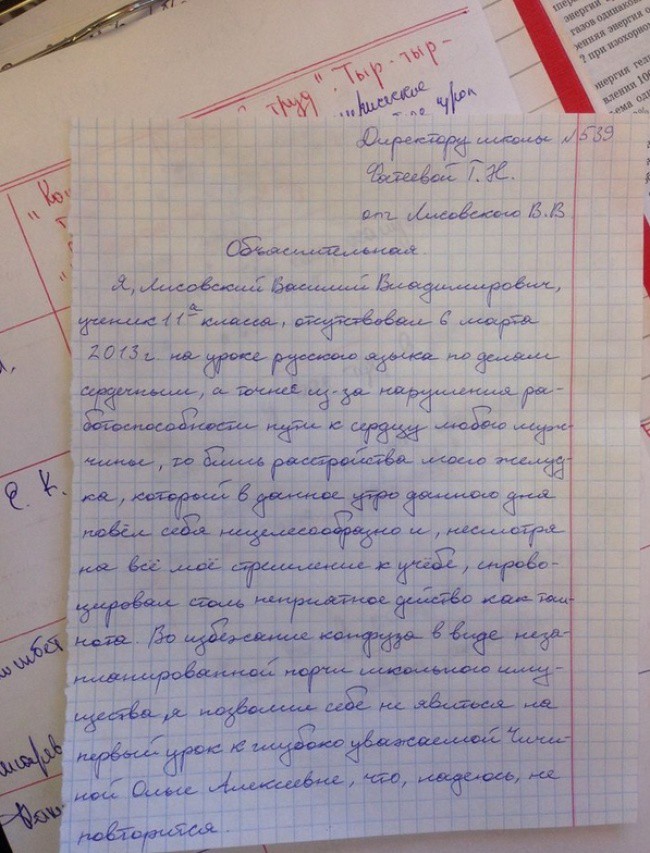 труд". Тыр-тыр-
урок
"Ко
Директору школы №539
Фатеевой Г.Н.
от Лисовского В.В
Объяснительная.
Я, Лисовский Василий Владимирович,
ученик 11а класса, отсутствовал 6 марта
2013г. на уроке русского языка по делам
сердечным, а точнее из-за нарушения ра-
ботоспособности пути к сердцу любого муж-
чины, то бишь расстройства моего желуд-
ка, который в данное утро данного дня
повёл себя нецелесообразно и, несмотря
на всё моё стремление к учёбе, спрово-
цировал столь неприятное действо как тош-
нота. Во избежание конфуза в виде неза-
планированной порчи школьного иму-
щества, я позволил себе не явиться на
первый урок к глубоко уважаемой Чичи-
ной Ольге Алексеевне, что, надеюсь, не
повторится.
С. К.